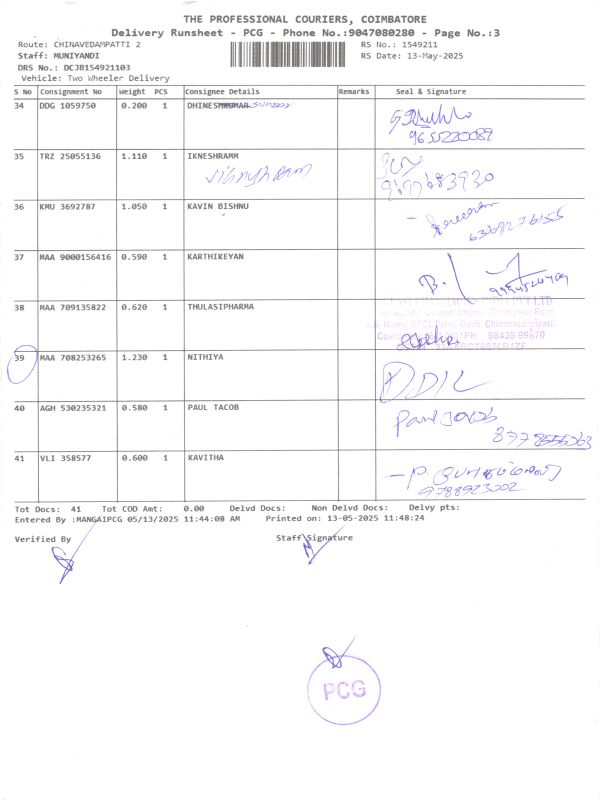 THE PROFESSIONAL COURIERS, COIMBATORE
Delivery Runsheet - PCG - Phone No.:9047080280 - Page No.:3
Route: CHINAVEDAMPATTI 2 RS No.: 1549211
Staff: MUNIYANDI RS Date: 13-May-2025
DRS No.: DCJB154921103
Vehicle: Two Wheeler Delivery
S No Consignment No Weight PCS Consignee Details Remarks Seal & Signature
34 DDG 1059750 0.200 1 DHINESHKUMAR
9655220089
35 TRZ 25055136 1.110 1 IKNESHRAMM
36 KMU 3692787 1.050 1 KAVIN BISHNU
37 MAA 9000156416 0.590 1 KARTHIKEYAN
38 MAA 709135822 0.620 1 THULASIPHARMA
39 MAA 708253265 1.230 1 NITHIYA
40 AGH 530235321 0.580 1 PAUL TACOB
Paul Jacob
41 VLI 358577 0.600 1 KAVITHA
9788923002
Tot Docs: 41 Tot COD Amt: 0.00 Delvd Docs: Non Delvd Docs: Delvy pts:
Entered By :MANGAIPCG 05/13/2025 11:44:08 AM Printed on: 13-05-2025 11:48:24
Verified By Staff Signature
PCG